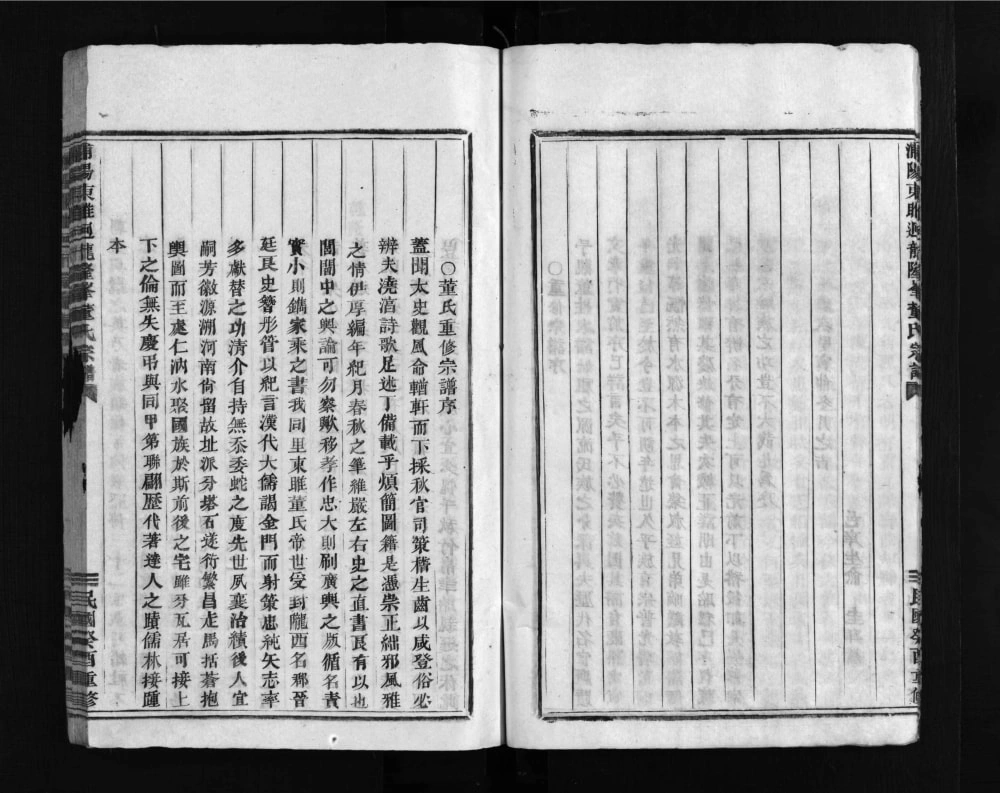 浦陽東睢迥龍隆峯董氏宗譜
民國癸酉重修
○董氏重修宗譜序
蓋聞太史觀風命輶軒而下採秋官司策稽生齒以咸登俗必
辨夫澆湻詩歌足述丁備載乎煩簡圖籍是憑崇正絀邪風雅
之情伊厚編年紀月春秋之筆維嚴左右史之直書良有以也
閭閻中之輿論可勿察歟移孝作忠大則刷廣輿之版循名責
實小則鐫家乘之書我同里東睢董氏帝世受封隴西名郡晉
廷良史簪形管以紀言漢代大儒謁金門而射策忠純矢志率
多獻替之功清介自持無忝委蛇之度先世夙襄治積後人宜
嗣芳徽源溯河南尙留故址派分塔石遂衍繁昌走馬括蒼抱
輿圖而王處仁汭水聚國族於斯前後之宅雖分瓦居可接上
下之倫無失慶弔與同甲第聯翩歷代著達人之蹟儒林接踵
本
浦陽東睢迥龍隆峯董氏宗譜
民國癸酉重修